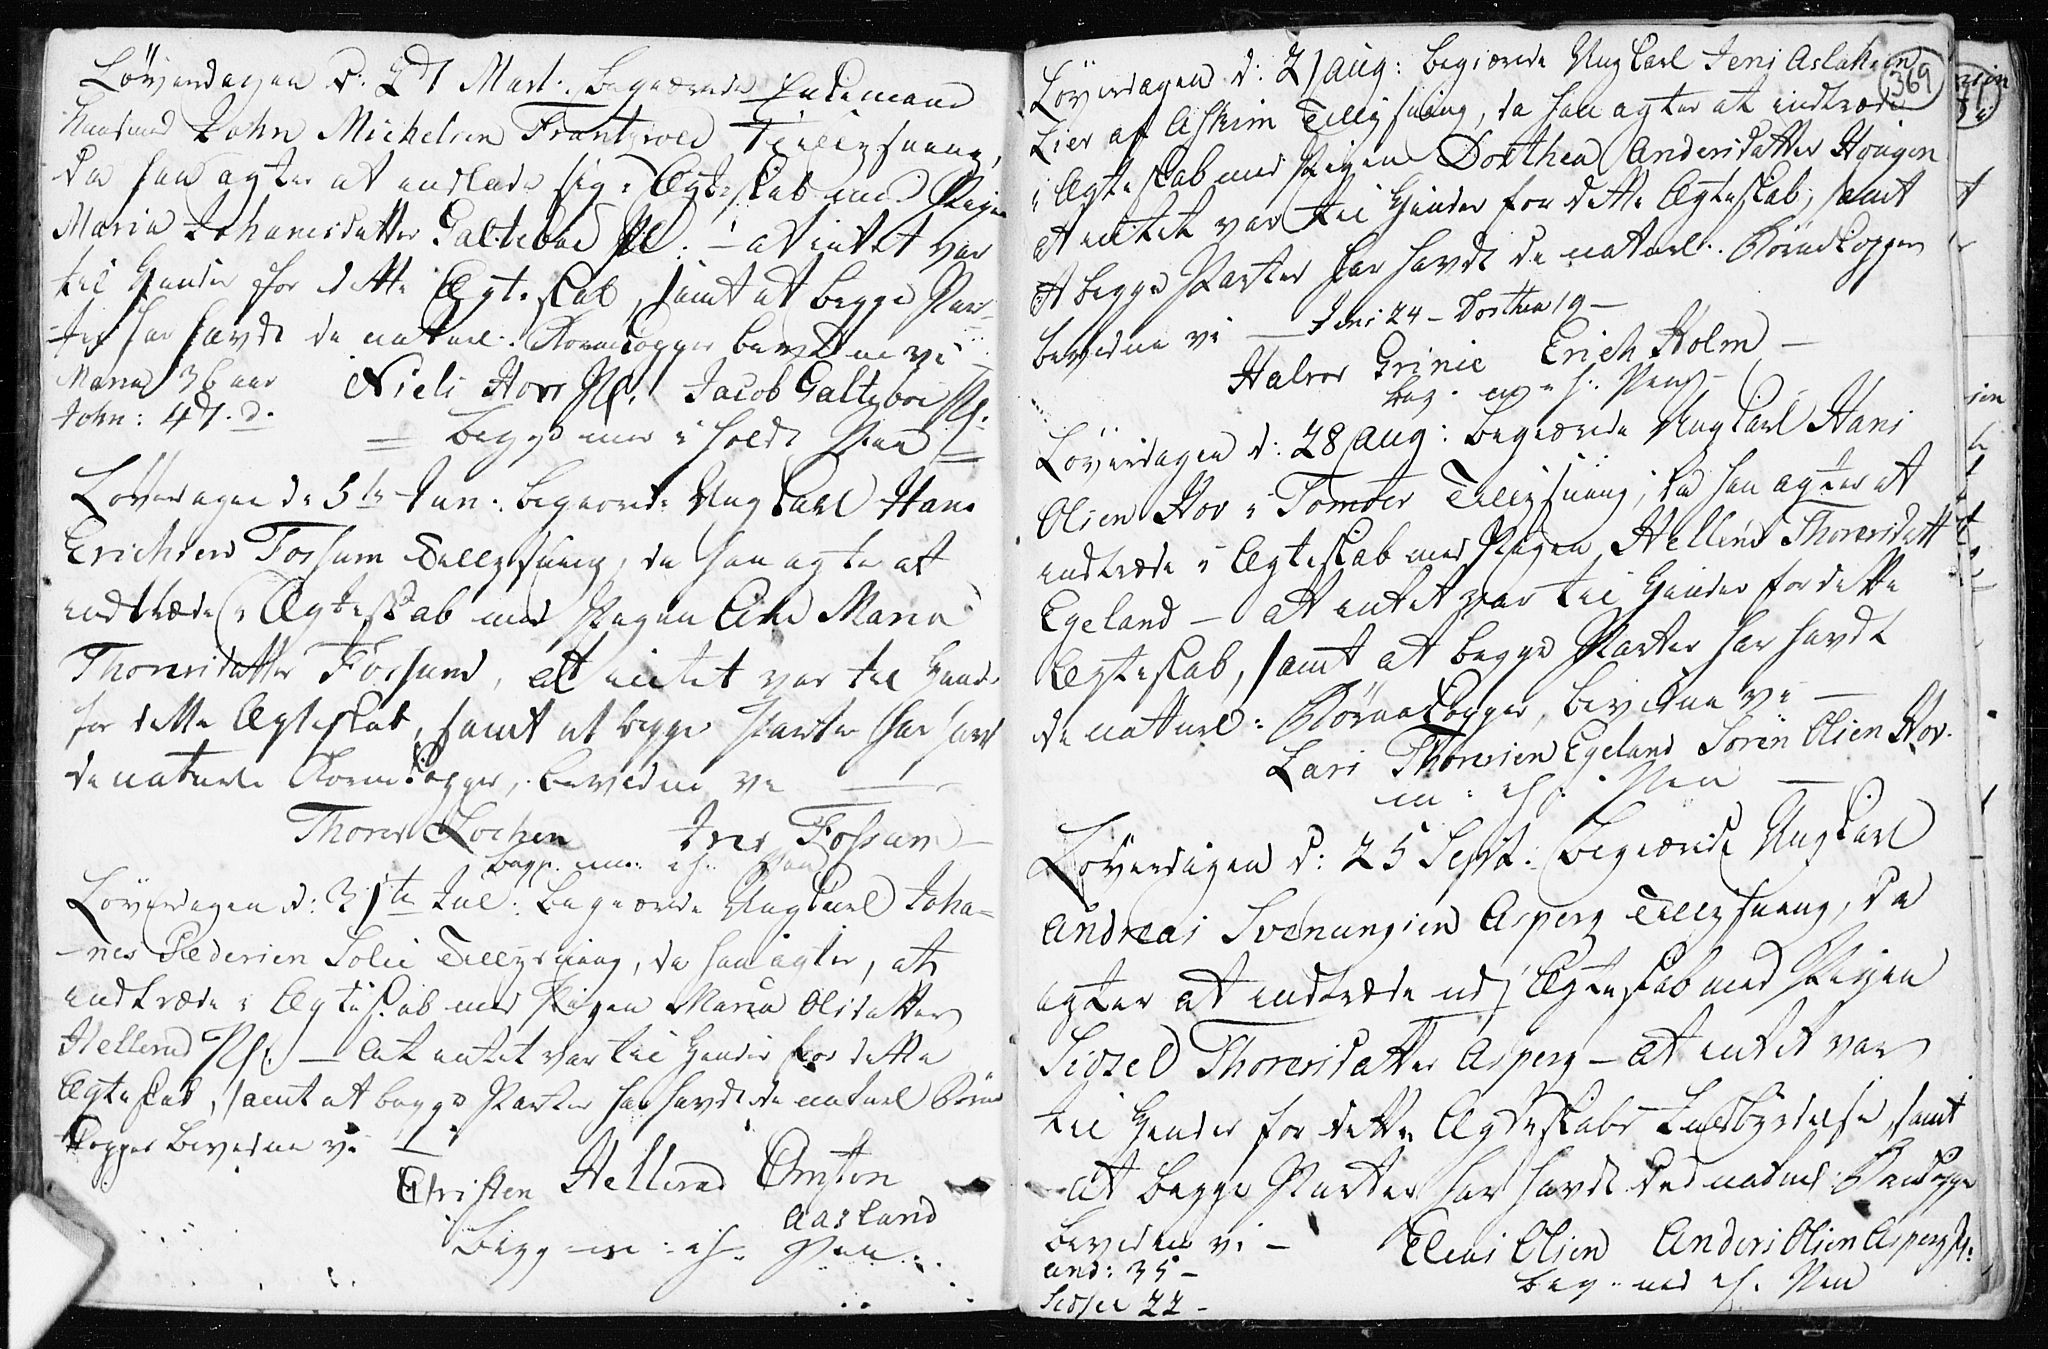 Löverdagen d: 27 Mart: begærede Enkemand
John Michelsen Frantzvold Tillysning,
da han agter at indlade sig i Ægteskab med Pigen
Maria Johanesdatter Galteboe Pl: – at intet var
til Hinder for dette Ægteskab, samt at begge Par-
ter har havdt de naturl: Börnekopper bevidne vi –
Maria 36 aar Niels Hov Pl: Jacob Galteboe Pl:
John: 47. d.
– begge med i holdt Pen –
Löverdagen d: 5te Jun: begærede Ung Karl Hans
Erichsen Fossum Tillysning, da han agter at
indtræde i Ægteskab med Pigen Ane Maria
Thoresdatter Fossum, at intet var til Hinder
for dette Ægteskab, samt at begge Parter har havt
de naturle Börnekopper, bevidne vi –
Thorer Lochen Iver Fossum –
begge med ih: Pen
Löverdagen d: 31te Jul: begærede Ung Karl Joha=
nes Pedersen Solie Tillysning, da han agter, at
indtræde i Ægteskab med Pigen Maria Olsdatter
Hellerud Pl: – At intet var til Hinder for dette
Ægteskab, samt at begge Parter har havdt de naturl Börne
kopper bevidne vi –
Christen Hellerud
Aasland
begg m: ih: Pen.
369
Löverdagen d: 21 Aug: begiærede Ung Karl Jens Aslaksen
Lier af Askim Tillysning, da han agter at indtræde
i Ægteskab med Pigen Dorthea Andersdatter Haugen
at intet var til Hinder for dette Ægteskab, samt
at begge Parter har havdt de naturl: Börnekopper
bevidne vi – Jens 24 – Dorthea 19 –
Halvor Grinie Erich Holm –
beg. m: i h: Pen –
Löverdagen d: 28 Aug: begiærede Ung Karl Hans
Olsen Hov i Tomter Tillysning, da han agter at
indtræde i Ægteskab med Pigen Hellene Thoresdatt
Egeland – at intet var til Hinder for dette
Ægteskab, samt at begge Parter har havdt
de naturl: Börnekopper, bevidne vi –
Lars Thoresen Egeland Sören Olsen Hov.
m: i h: Pen –
Löverdagen d: 25 Sept: begiærede Ung Karl
Andreas Svenungsen Asperg Tillysning, da
agter at indtræde udj Ægteskab med Pigen
Sidsel Thoresdatter Asperg – at intet var
til Hinder for dette Ægteskabs Fuldbyrdelse, samt
at begge Parter har havdt de naturl: Börnekopper
bevidne vi – Elias Olsen Anders Olsen Asperg Pl:
And: 35 – beg: med ih. Pen
Sidsel 22 –